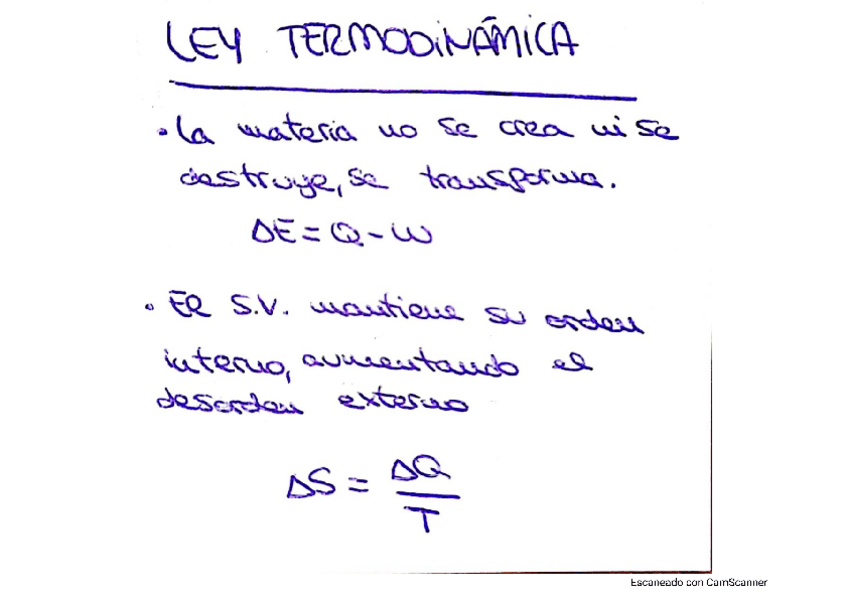 LEY TERMODINÁMICA
• La materia no se crea ni se
destruye, se transforma.
ΔE = Q - W
• El S.V. mantiene su orden
interno, aumentando el
desorden externo
ΔS = ΔQ
T
Escaneado con CamScanner